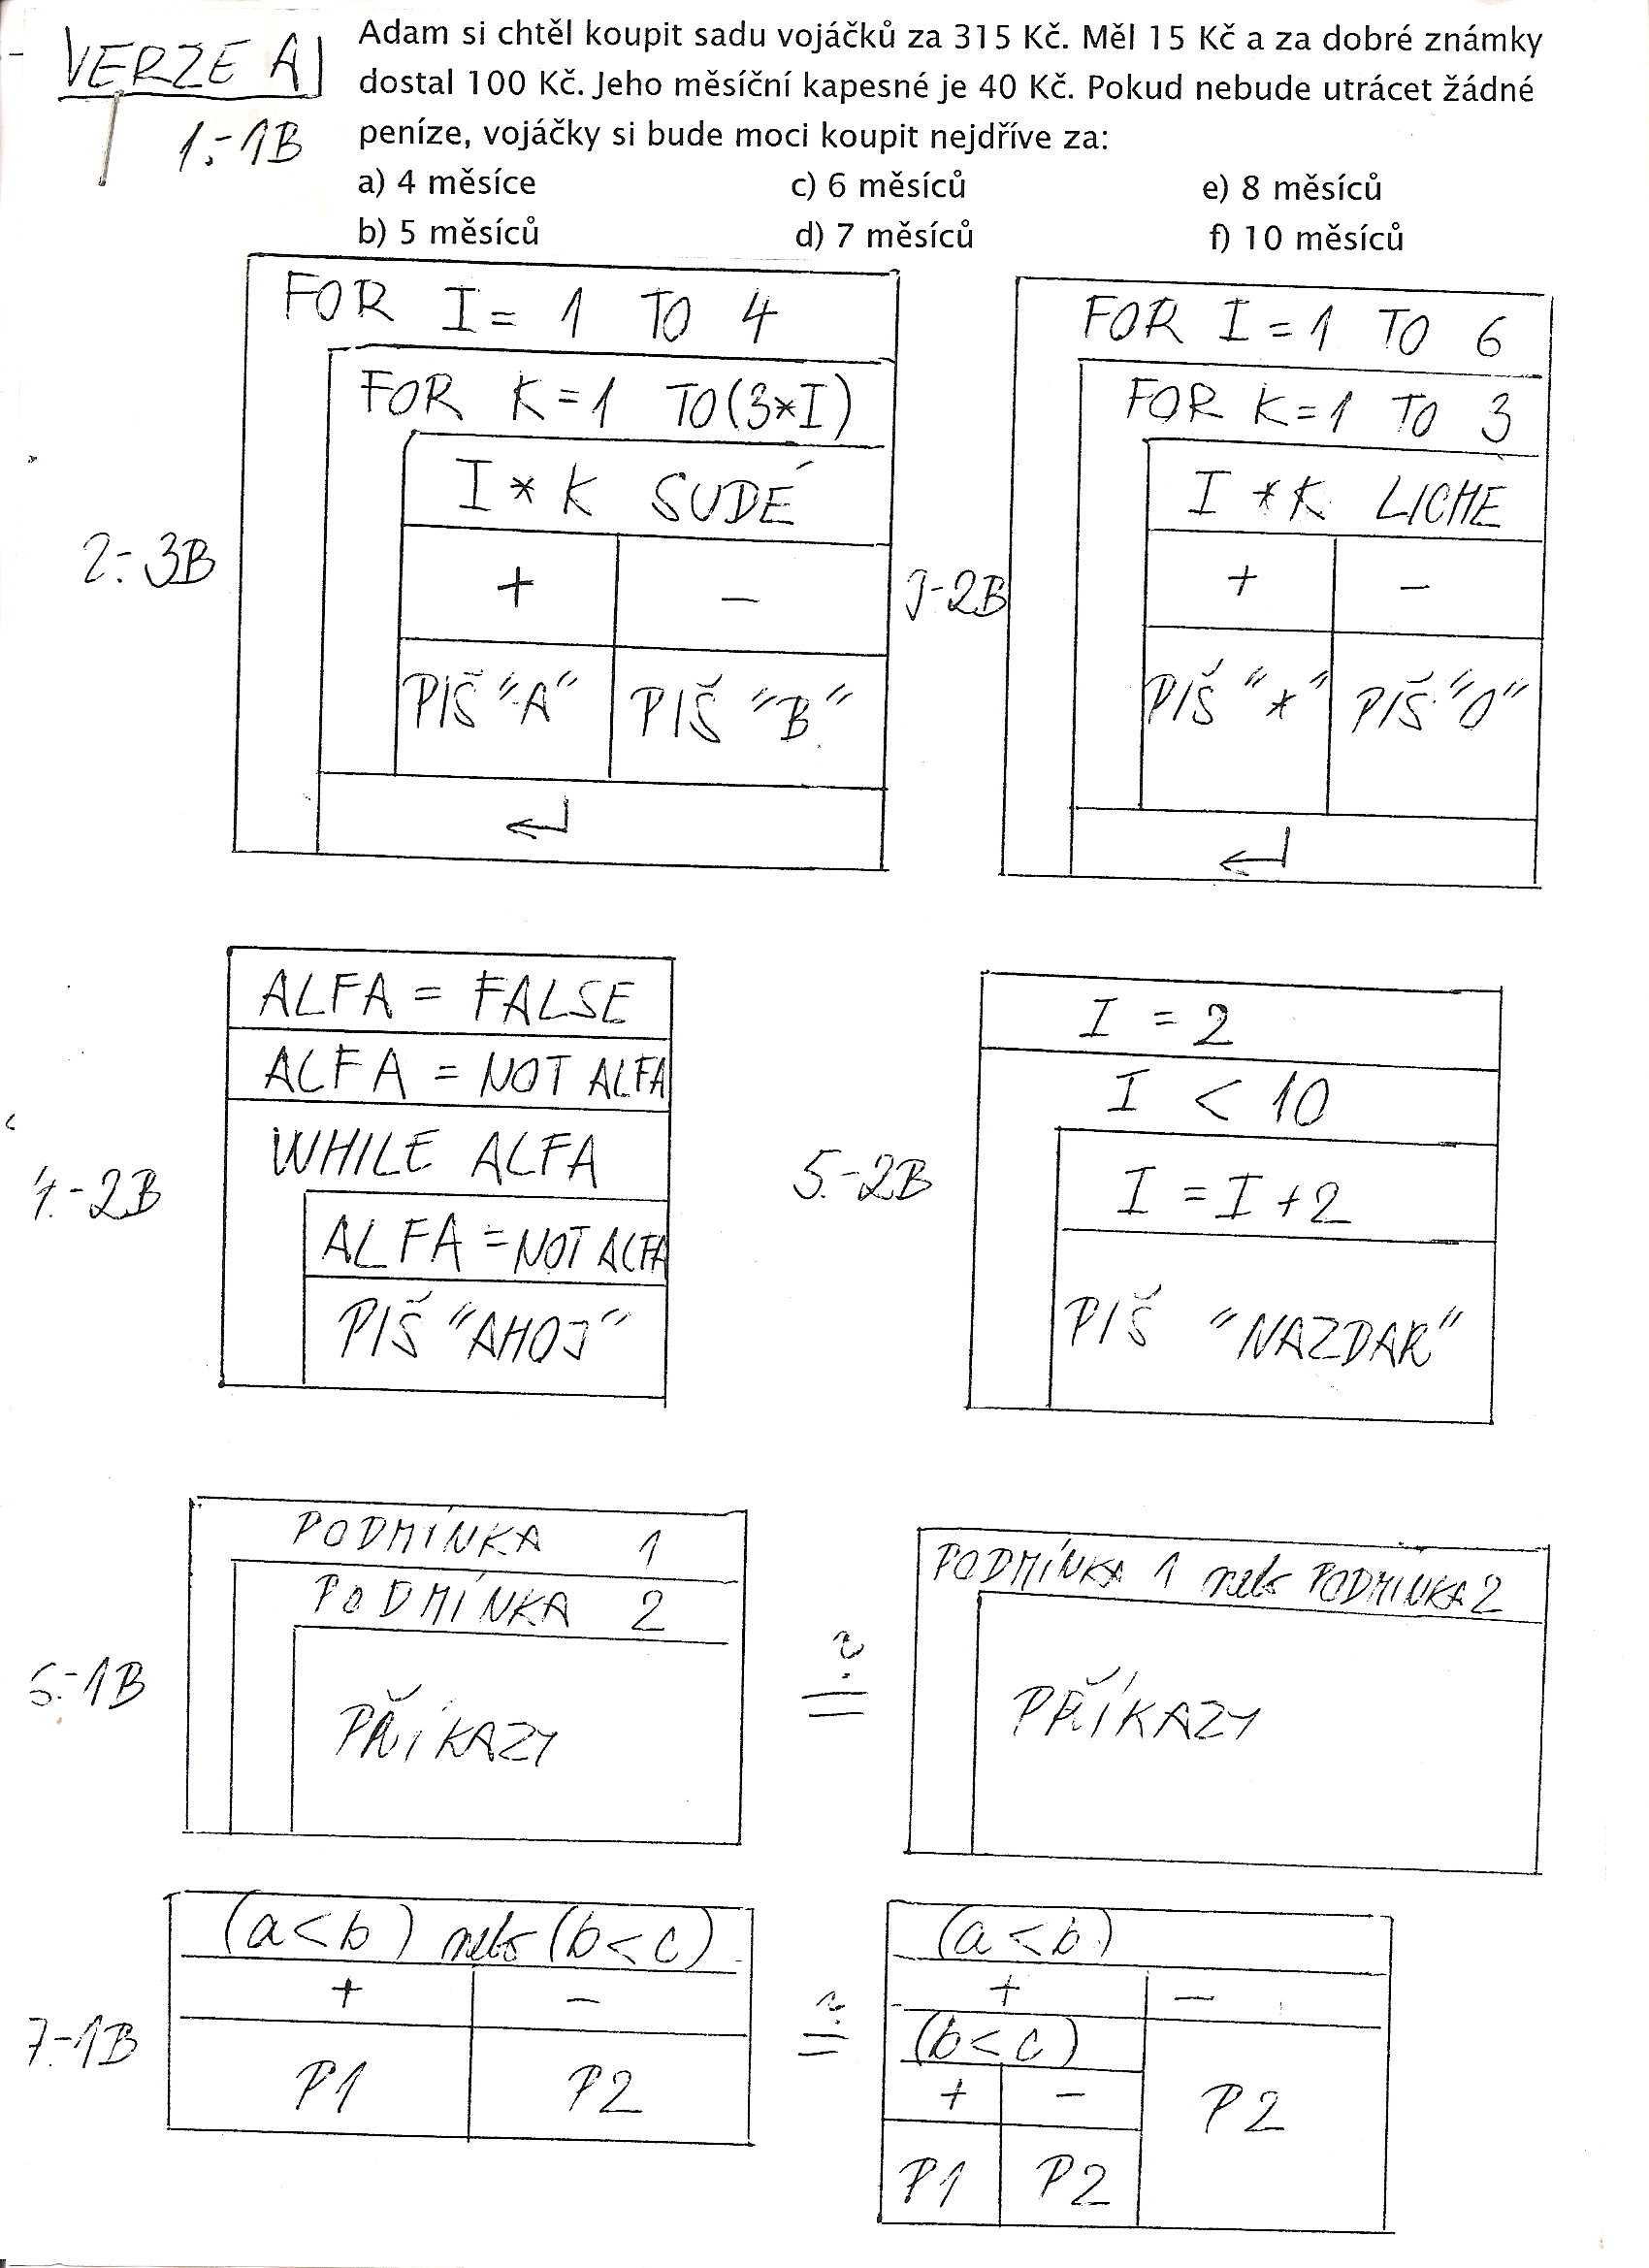 VERZE A
1.-1B
Adam si chtěl koupit sadu vojáčků za 315 Kč. Měl 15 Kč a za dobré známky
dostal 100 Kč. Jeho měsíční kapesné je 40 Kč. Pokud nebude utrácet žádné
peníze, vojáčky si bude moci koupit nejdříve za:
a) 4 měsíce c) 6 měsíců e) 8 měsíců
b) 5 měsíců d) 7 měsíců f) 10 měsíců
2.-3B
FOR I = 1 TO 4
FOR K=1 TO(3*I)
I * K SUDÉ
+ −
PIŠ "A" PIŠ "B"
↵
3-2B
FOR I = 1 TO 6
FOR K=1 TO 3
I * K LICHÉ
+ −
PIŠ "*" PIŠ "O"
↵
4.-2B
ALFA = FALSE
ALFA = NOT ALFA
WHILE ALFA
ALFA = NOT ALFA
PIŠ "AHOJ"
5.-2B
I = 2
I < 10
I = I + 2
PIŠ "NAZDAR"
6.-1B
PODMÍNKA 1
PODMÍNKA 2
PŘÍKAZY
?
=
PODMÍNKA 1 nebo PODMÍNKA 2
PŘÍKAZY
7.-1B
(a<b) nebo (b<c)
+ −
P1 P2
?
=
(a<b)
+ −
(b<c)
+ −
P2
P1 P2